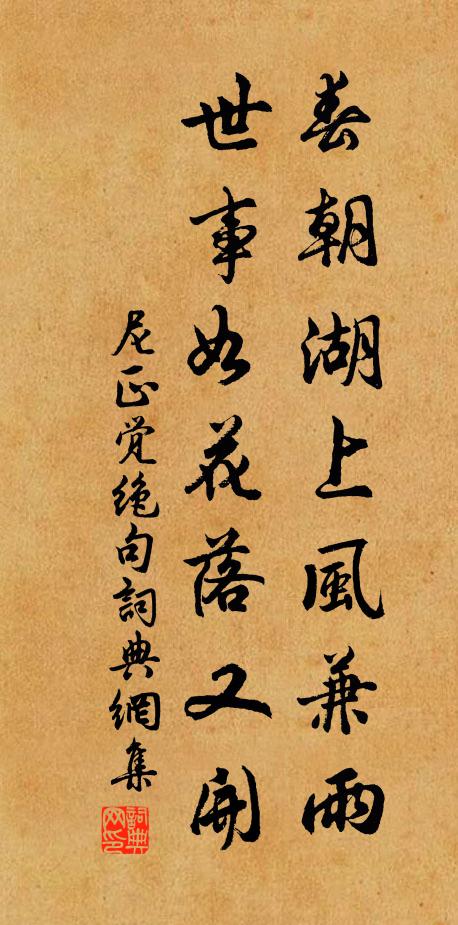 春朝湖上風兼雨
世事如花落又開
尼正覺絶句詞典網集
詞典网印